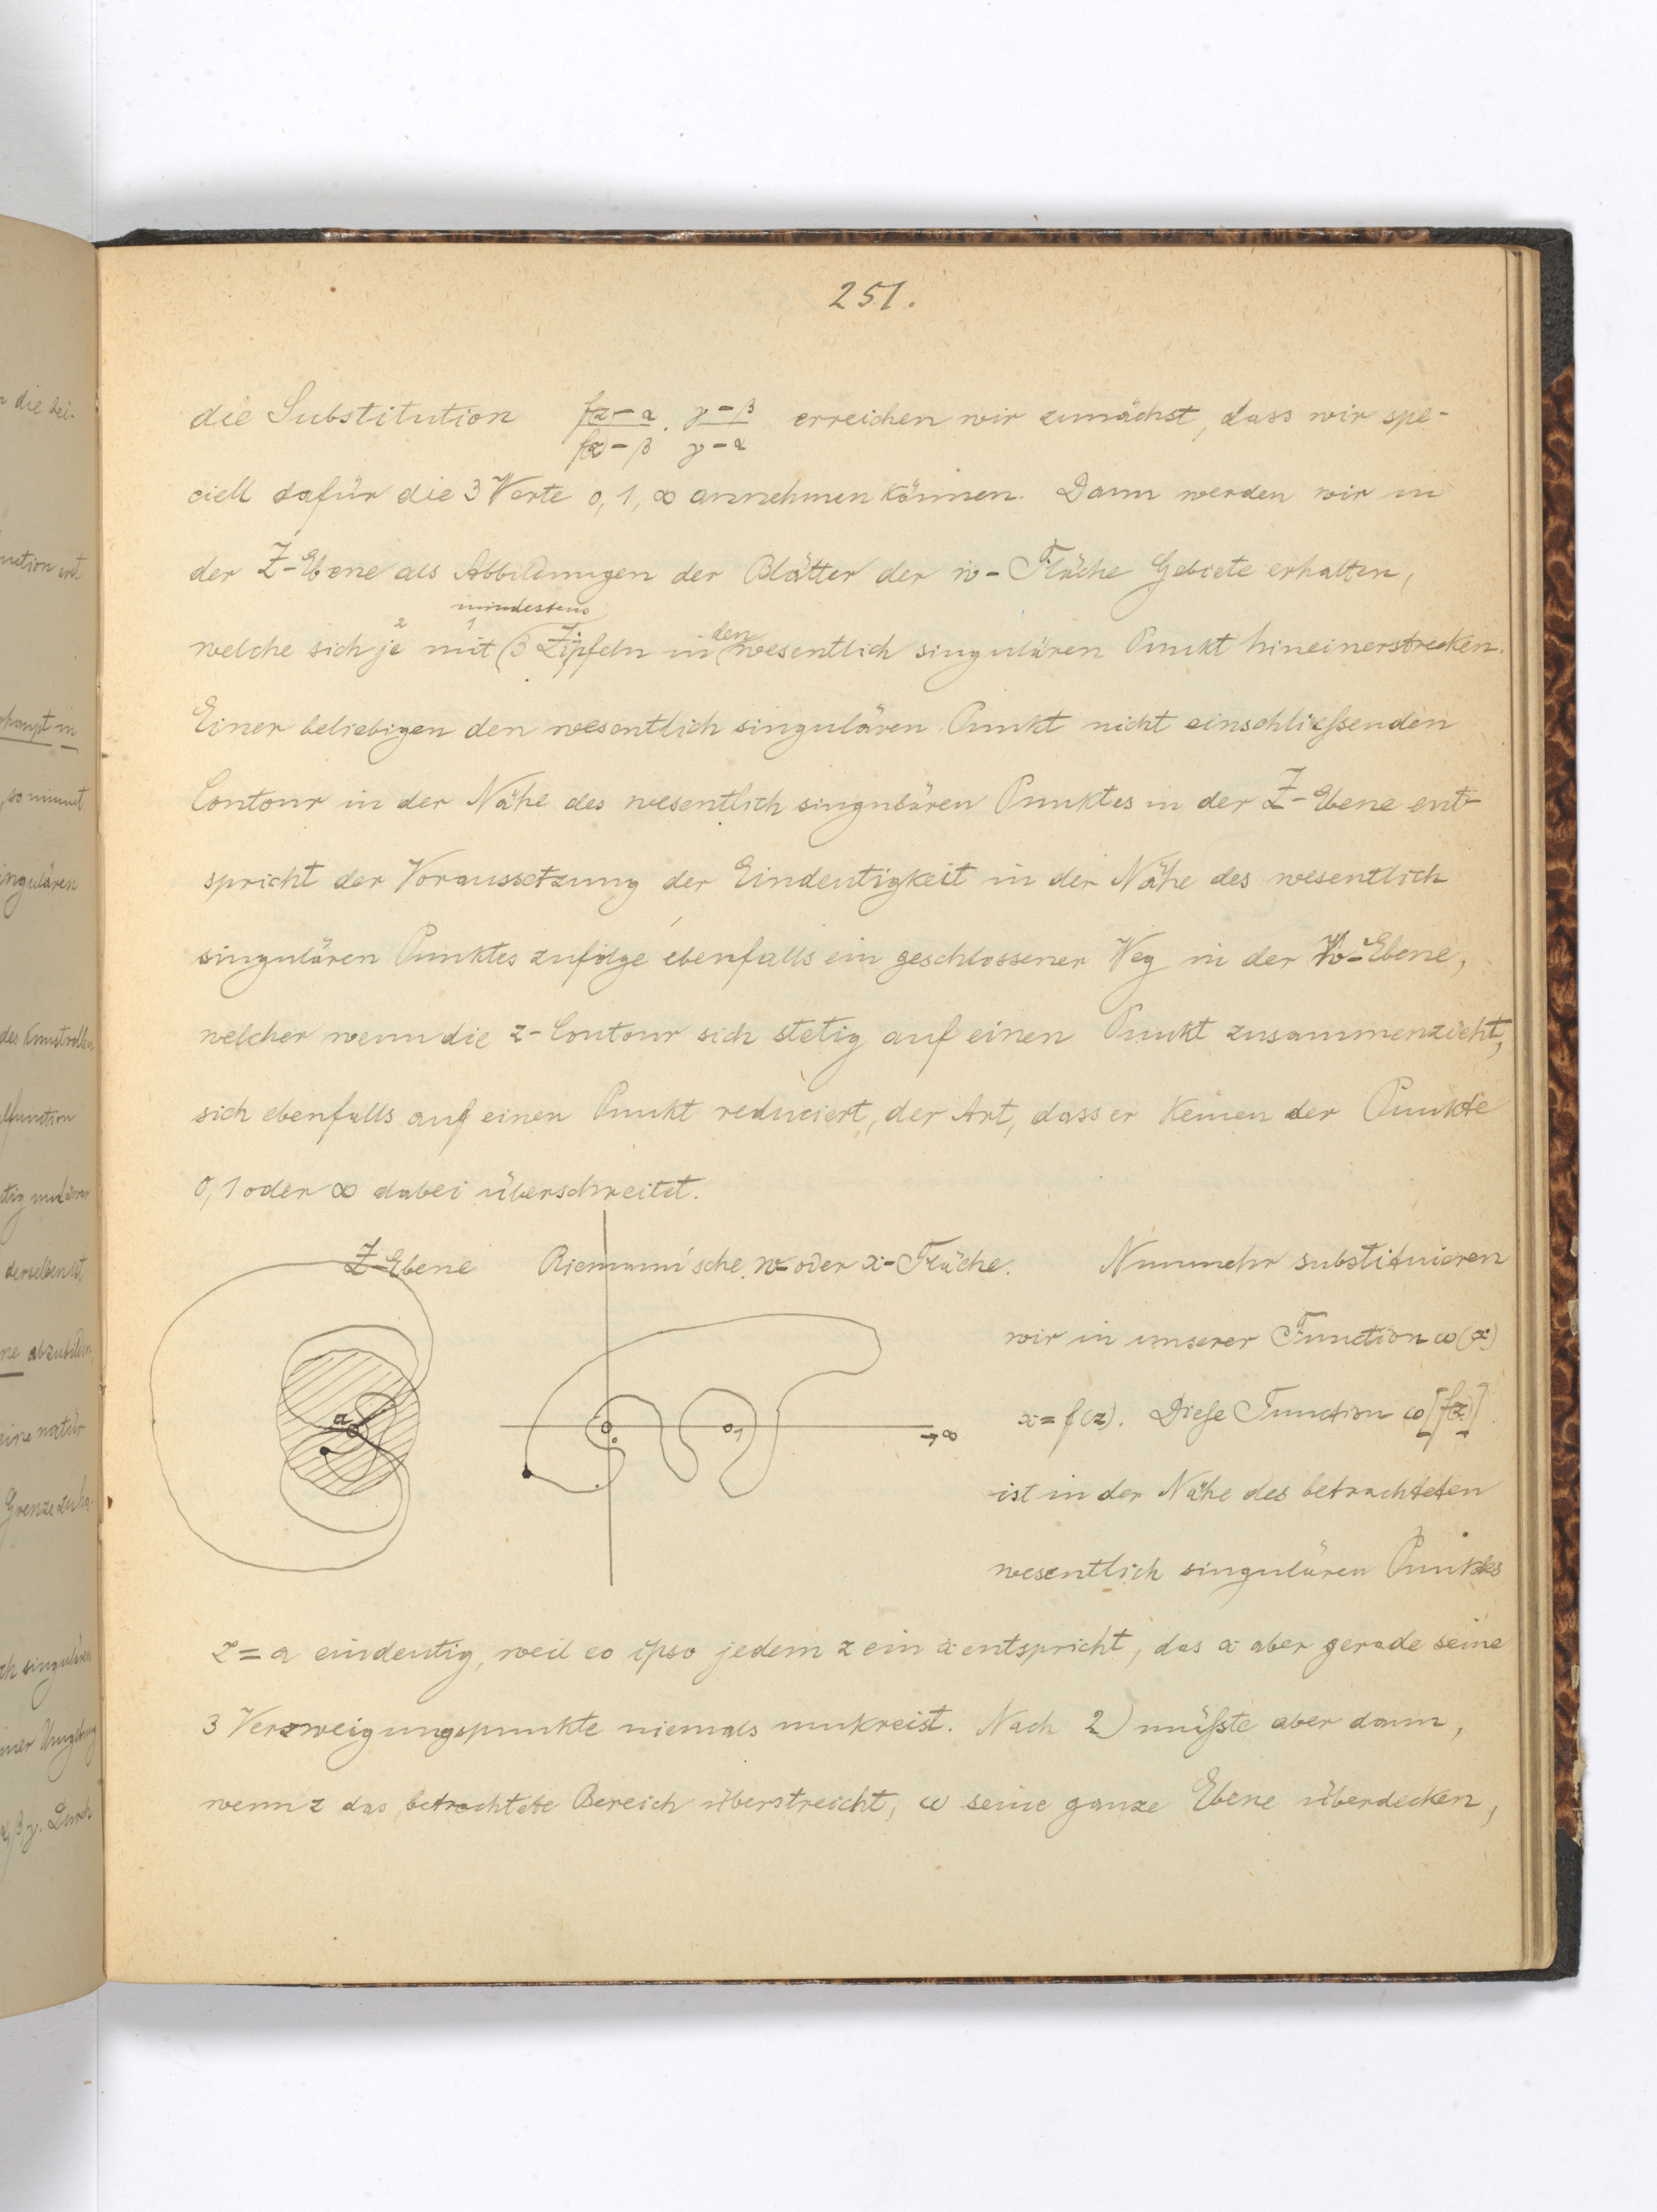 251.
die Substitution f(z)-α/f(z)-β · γ-β/γ-α erreichen wir zunächst, dass wir spe-
ciell dafür die 3 Werte 0, 1, ∞ annehmen können. Dann werden wir in
der Z-Ebene als Abbildungen der Blätter der w-Fläche Gebiete erhalten,
mindestens
welche sich je 2 mit 1 (3 Zipfeln in den wesentlich singulären Punkt hineinerstrecken.
Einer beliebigen den wesentlich singulären Punkt nicht einschliessenden
Contour in der Nähe des wesentlich singulären Punktes in der Z-Ebene ent-
spricht der Voraussetzung der Eindeutigkeit in der Nähe des wesentlich
singulären Punktes zufolge ebenfalls ein geschlossener Weg in der W-Ebene,
welcher wenn die z-Contour sich stetig auf einen Punkt zusammenzieht,
sich ebenfalls auf einen Punkt reduciert, der Art, dass er keinen der Punkte
0, 1 oder ∞ dabei überschreitet.
Z-Ebene Riemann'sche w- oder x-Fläche. Nunmehr substituieren
wir in unserer Function ω(x)
x = f(z). Diese Function ω[f(z)]
ist in der Nähe des betrachteten
wesentlich singulären Punktes
a
0
1
→∞
z = a eindeutig, weil eo ipso jedem z ein x entspricht, das x aber gerade seine
3 Verzweigungspunkte niemals umkreist. Nach 2) müsste aber dann,
wenn z das betrachtete Bereich überstreicht, ω seine ganze Ebene überdecken,
die bei-
nction erst
rhaupt in
, so nimmt
ingulären
function
derselben ist,
ne abzubilden,
eine natür
ch singulären
iner Umgebung
α, β, γ. Durch